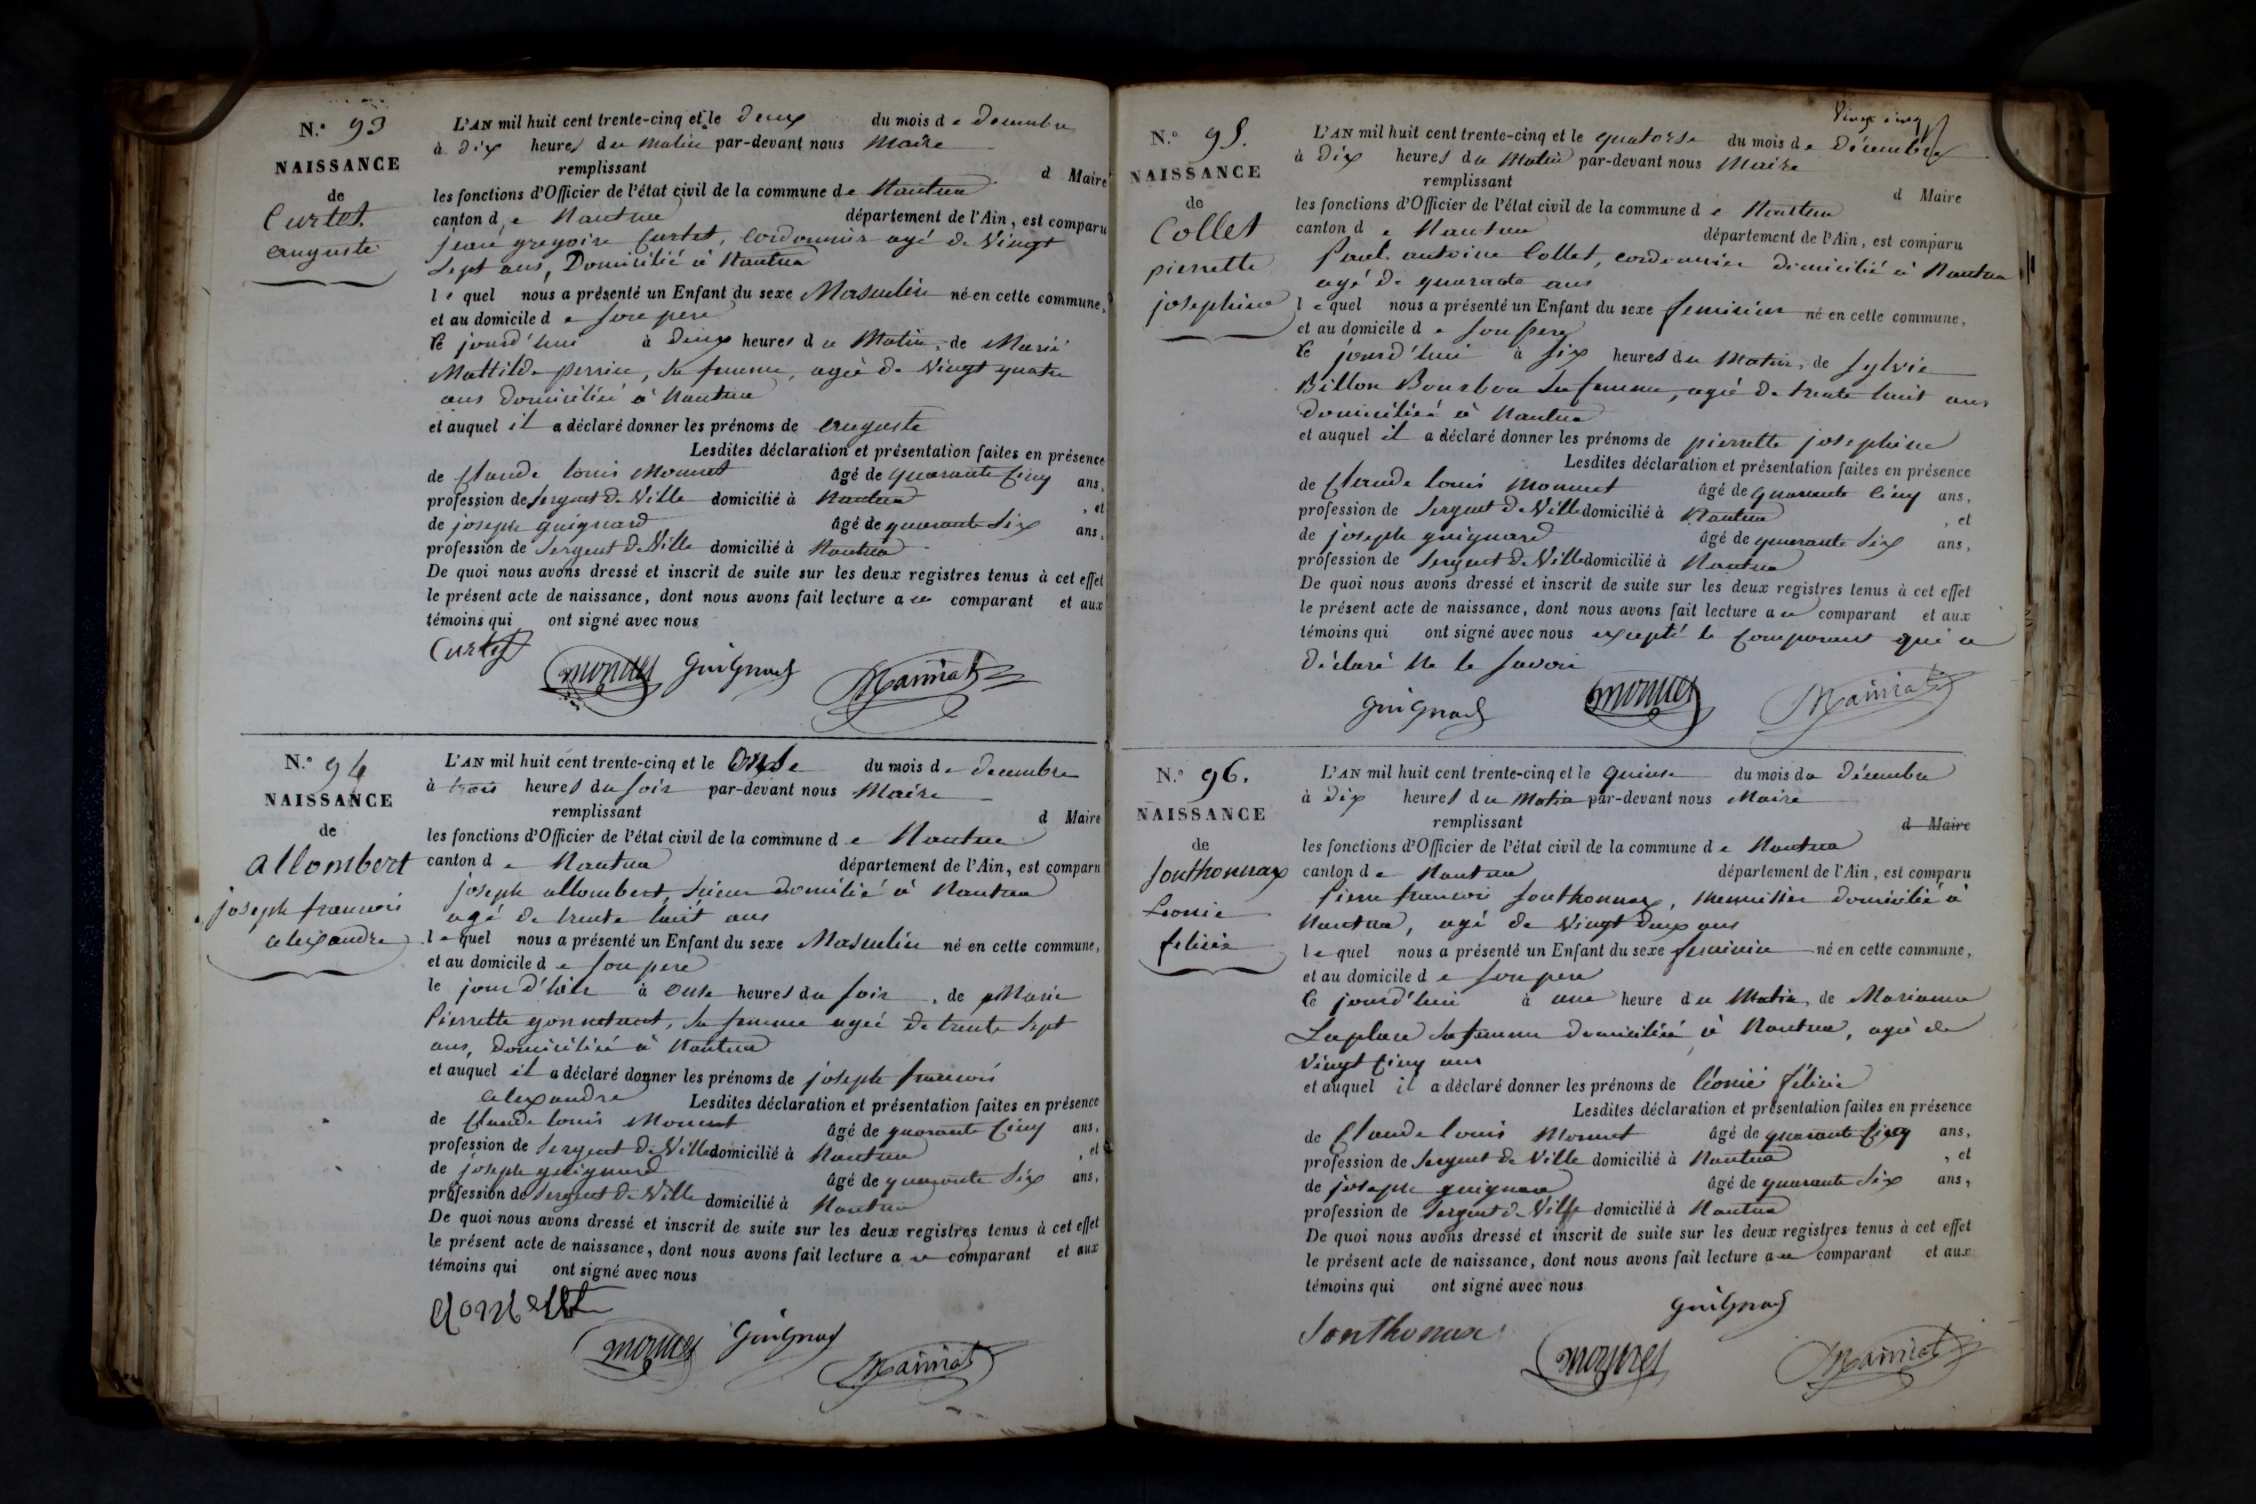 N.° 93
NAISSANCE
de
Curtet
auguste
L'AN mil huit cent trente-cinq et le deux du mois de decembre
à dix heures du matin par-devant nous Maire
remplissant d Maire
les fonctions d'Officier de l'état civil de la commune de Nantua
canton de Nantua département de l'Ain, est comparu
jean gregoire Curtet, Cordonnier agé de Vingt
Sept ans, Domicilié à Nantua
lequel nous a présenté un Enfant du sexe Masculin né en cette commune,
et au domicile de son pere
le jourd'hui à deux heures du Matin, de Marie
Mattilde perrin, sa femme, agée de Vingt quatre
ans domiciliée à Nantua
et auquel il a déclaré donner les prénoms de auguste
Lesdites déclaration et présentation faites en présence
de Claude louis Monnet âgé de quarante Cinq ans,
profession de Sergent de Ville domicilié à Nantua , et
de joseph guignard âgé de quarante Six ans,
profession de Sergent de Ville domicilié à Nantua
De quoi nous avons dressé et inscrit de suite sur les deux registres tenus à cet effet
le présent acte de naissance, dont nous avons fait lecture au comparant et aux
témoins qui ont signé avec nous
Curtet
monnet Guignard
N.° 94
NAISSANCE
de
allombert
joseph francois
alexandre
L'AN mil huit cent trente-cinq et le Onse du mois de decembre
à trois heures du soir par-devant nous Maire
remplissant d Maire
les fonctions d'Officier de l'état civil de la commune de Nantua
canton de Nantua département de l'Ain, est comparu
joseph allombert, domicilié à Nantua
agé de trente huit ans
lequel nous a présenté un Enfant du sexe Masculin né en cette commune,
et au domicile de son pere
le jour d'hier à onse heures du soir, de Marie
Pierrette, sa femme agée de trente Sept
ans, domiciliée à Nantua
et auquel il a déclaré donner les prénoms de joseph francois
alexandre Lesdites déclaration et présentation faites en présence
de Claude louis Monnet âgé de quarante Cinq ans,
profession de Sergent de Ville domicilié à Nantua , et
de joseph guignard âgé de quarante Six ans,
profession de Sergent de Ville domicilié à Nantua
De quoi nous avons dressé et inscrit de suite sur les deux registres tenus à cet effet
le présent acte de naissance, dont nous avons fait lecture au comparant et aux
témoins qui ont signé avec nous
monnet Guignard
Vingt cinq
N.° 95.
NAISSANCE
de
Collet
pierrette
josephine
L'AN mil huit cent trente-cinq et le quatorse du mois de Décembre
à Dix heures du Matin par-devant nous Maire
remplissant d Maire
les fonctions d'Officier de l'état civil de la commune de Nantua
canton de Nantua département de l'Ain, est comparu
Paul antoine Collet, cordonnier domicilié à Nantua
agé de quarante ans
lequel nous a présenté un Enfant du sexe feminin né en cette commune,
et au domicile de son pere
le jourd'hui à six heures du Matin, de Sylvie
Billon Bourbon sa femme, agée de trente huit ans
domiciliée à Nantua
et auquel il a déclaré donner les prénoms de pierrette josephine
Lesdites déclaration et présentation faites en présence
de Claude louis Monnet âgé de quarante Cinq ans,
profession de Sergent de Ville domicilié à Nantua , et
de joseph guignard âgé de quarante Six ans,
profession de Sergent de Ville domicilié à Nantua
De quoi nous avons dressé et inscrit de suite sur les deux registres tenus à cet effet
le présent acte de naissance, dont nous avons fait lecture au comparant et aux
témoins qui ont signé avec nous excepté le Comparant qui a
déclaré Ne le savoir
Guignard monnet
N.° 96.
NAISSANCE
de
Southonnax
Leonie
felicie
L'AN mil huit cent trente-cinq et le quinse du mois de décembre
à Dix heures du Matin par-devant nous Maire
remplissant d Maire
les fonctions d'Officier de l'état civil de la commune de Nantua
canton de Nantua département de l'Ain, est comparu
Pierre francois Southonnax, Menuisier domicilié à
Nantua, agé de Vingt Deux ans
lequel nous a présenté un Enfant du sexe feminin né en cette commune,
et au domicile de son pere
le jourd'hui à une heure du Matin, de Marianne
Laplace sa femme domiciliée à Nantua, agée de
Vingt Cinq ans
et auquel il a déclaré donner les prénoms de léonie félicie
Lesdites déclaration et présentation faites en présence
de Claude louis Monnet âgé de quarante Cinq ans,
profession de Sergent de Ville domicilié à Nantua , et
de joseph guignard âgé de quarante Six ans,
profession de Sergent de Ville domicilié à Nantua
De quoi nous avons dressé et inscrit de suite sur les deux registres tenus à cet effet
le présent acte de naissance, dont nous avons fait lecture au comparant et aux
témoins qui ont signé avec nous
Guignard
Southonnax
monnet